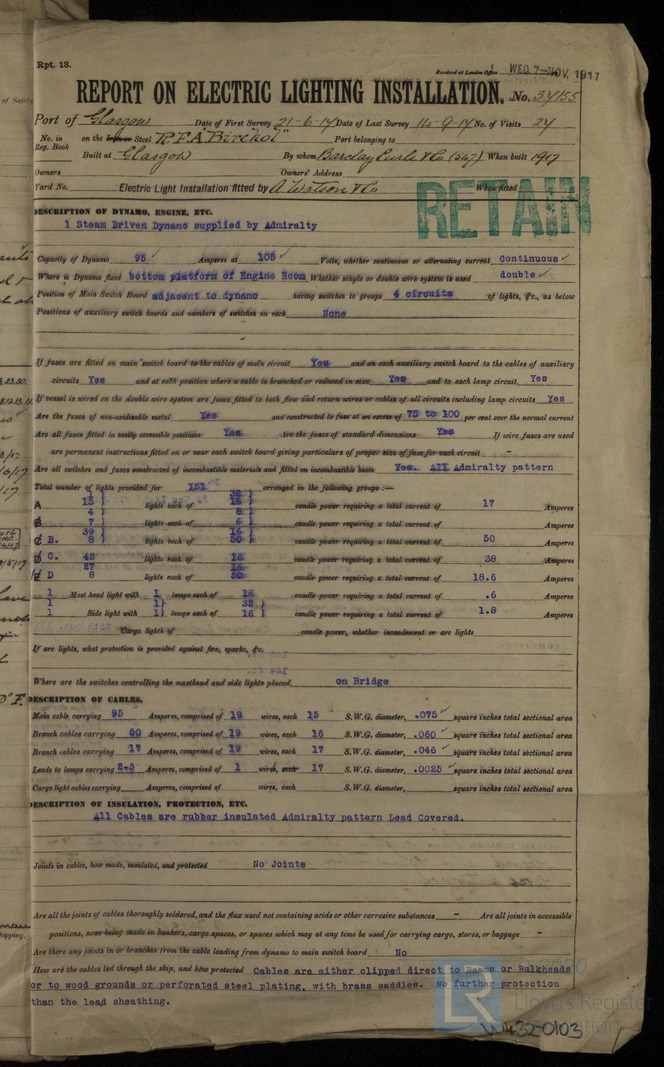 Rpt. 13.
Received at London Office WED. 7-NOV. 1917
REPORT ON ELECTRIC LIGHTING INSTALLATION. No. 37155
Port of Glasgow Date of First Survey 21-6-17 Date of Last Survey 14-9-17 No. of Visits 24
No. in Reg. Book on the Iron or Steel R.F.A "Birchol" Port belonging to
Built at Glasgow By whom Barclay Curle & Co (547) When built 1917
Owners Owners' Address
Yard No. Electric Light Installation fitted by A. Watson & Co When fitted
RETAIN
DESCRIPTION OF DYNAMO, ENGINE, ETC.
1 Steam Driven Dynamo supplied by Admiralty
Capacity of Dynamo 95 Amperes at 105 Volts, whether continuous or alternating current Continuous
Where is Dynamo fixed bottom platform of Engine Room Whether single or double wire system is used double
Position of Main Switch Board adjacent to dynamo having switches to groups 4 circuits of lights, &c., as below
Positions of auxiliary switch boards and numbers of switches on each None
If fuses are fitted on main switch board to the cables of main circuit Yes and on each auxiliary switch board to the cables of auxiliary
circuits Yes and at each position where a cable is branched or reduced in size Yes and to each lamp circuit Yes
If vessel is wired on the double wire system are fuses fitted to both flow and return wires or cables of all circuits including lamp circuits Yes
Are the fuses of non-oxidizable metal Yes and constructed to fuse at an excess of 75 to 100 per cent over the normal current
Are all fuses fitted in easily accessible positions Yes Are the fuses of standard dimensions Yes If wire fuses are used
are permanent instructions fitted on or near each switch board giving particulars of proper size of fuse for each circuit -
Are all switches and fuses constructed of incombustible materials and fitted on incombustible bases Yes. All Admiralty pattern
Total number of lights provided for 151 arranged in the following groups :—
1 32
A 15 lights each of 16 candle power requiring a total current of 17 Amperes
4 8
B 7 lights each of 5 candle power requiring a total current of Amperes
39 16
C B. 8 lights each of 50 candle power requiring a total current of 50 Amperes
D C. 42 lights each of 16 candle power requiring a total current of 38 Amperes
27 16
E D 8 lights each of 50 candle power requiring a total current of 18.6 Amperes
1 Mast head light with 1 lamps each of 16 candle power requiring a total current of .6 Amperes
1 1) 32
1 Side light with 1) lamps each of 16 candle power requiring a total current of 1.8 Amperes
Cargo lights of candle power, whether incandescent or arc lights
If arc lights, what protection is provided against fire, sparks, &c.
Where are the switches controlling the masthead and side lights placed on Bridge
DESCRIPTION OF CABLES.
Main cable carrying 95 Amperes, comprised of 19 wires, each 15 S.W.G. diameter, .075 square inches total sectional area
Branch cables carrying 50 Amperes, comprised of 19 wires, each 16 S.W.G. diameter, .060 square inches total sectional area
Branch cables carrying 17 Amperes, comprised of 19 wires, each 17 S.W.G. diameter, .046 square inches total sectional area
Leads to lamps carrying Amperes, comprised of 1 wires, each 17 S.W.G. diameter, .0025 square inches total sectional area
Cargo light cables carrying Amperes, comprised of wires, each S.W.G. diameter, square inches total sectional area
DESCRIPTION OF INSULATION, PROTECTION, ETC.
All Cables are rubber insulated Admiralty pattern Lead Covered.
Joints in cables, how made, insulated, and protected No Joints
Are all the joints of cables thoroughly soldered, and the flux used not containing acids or other corrosive substances - Are all joints in accessible
positions, none being made in bunkers, cargo spaces, or spaces which may at any time be used for carrying cargo, stores, or baggage -
Are there any joints in or branches from the cable leading from dynamo to main switch board No
How are the cables led through the ship, and how protected Cables are either clipped direct to Beams or Bulkheads
or to wood grounds or perforated steel plating, with brass saddles. No further protection
than the lead sheathing.
LR
Lloyd's Register
Foundation
W432-0103